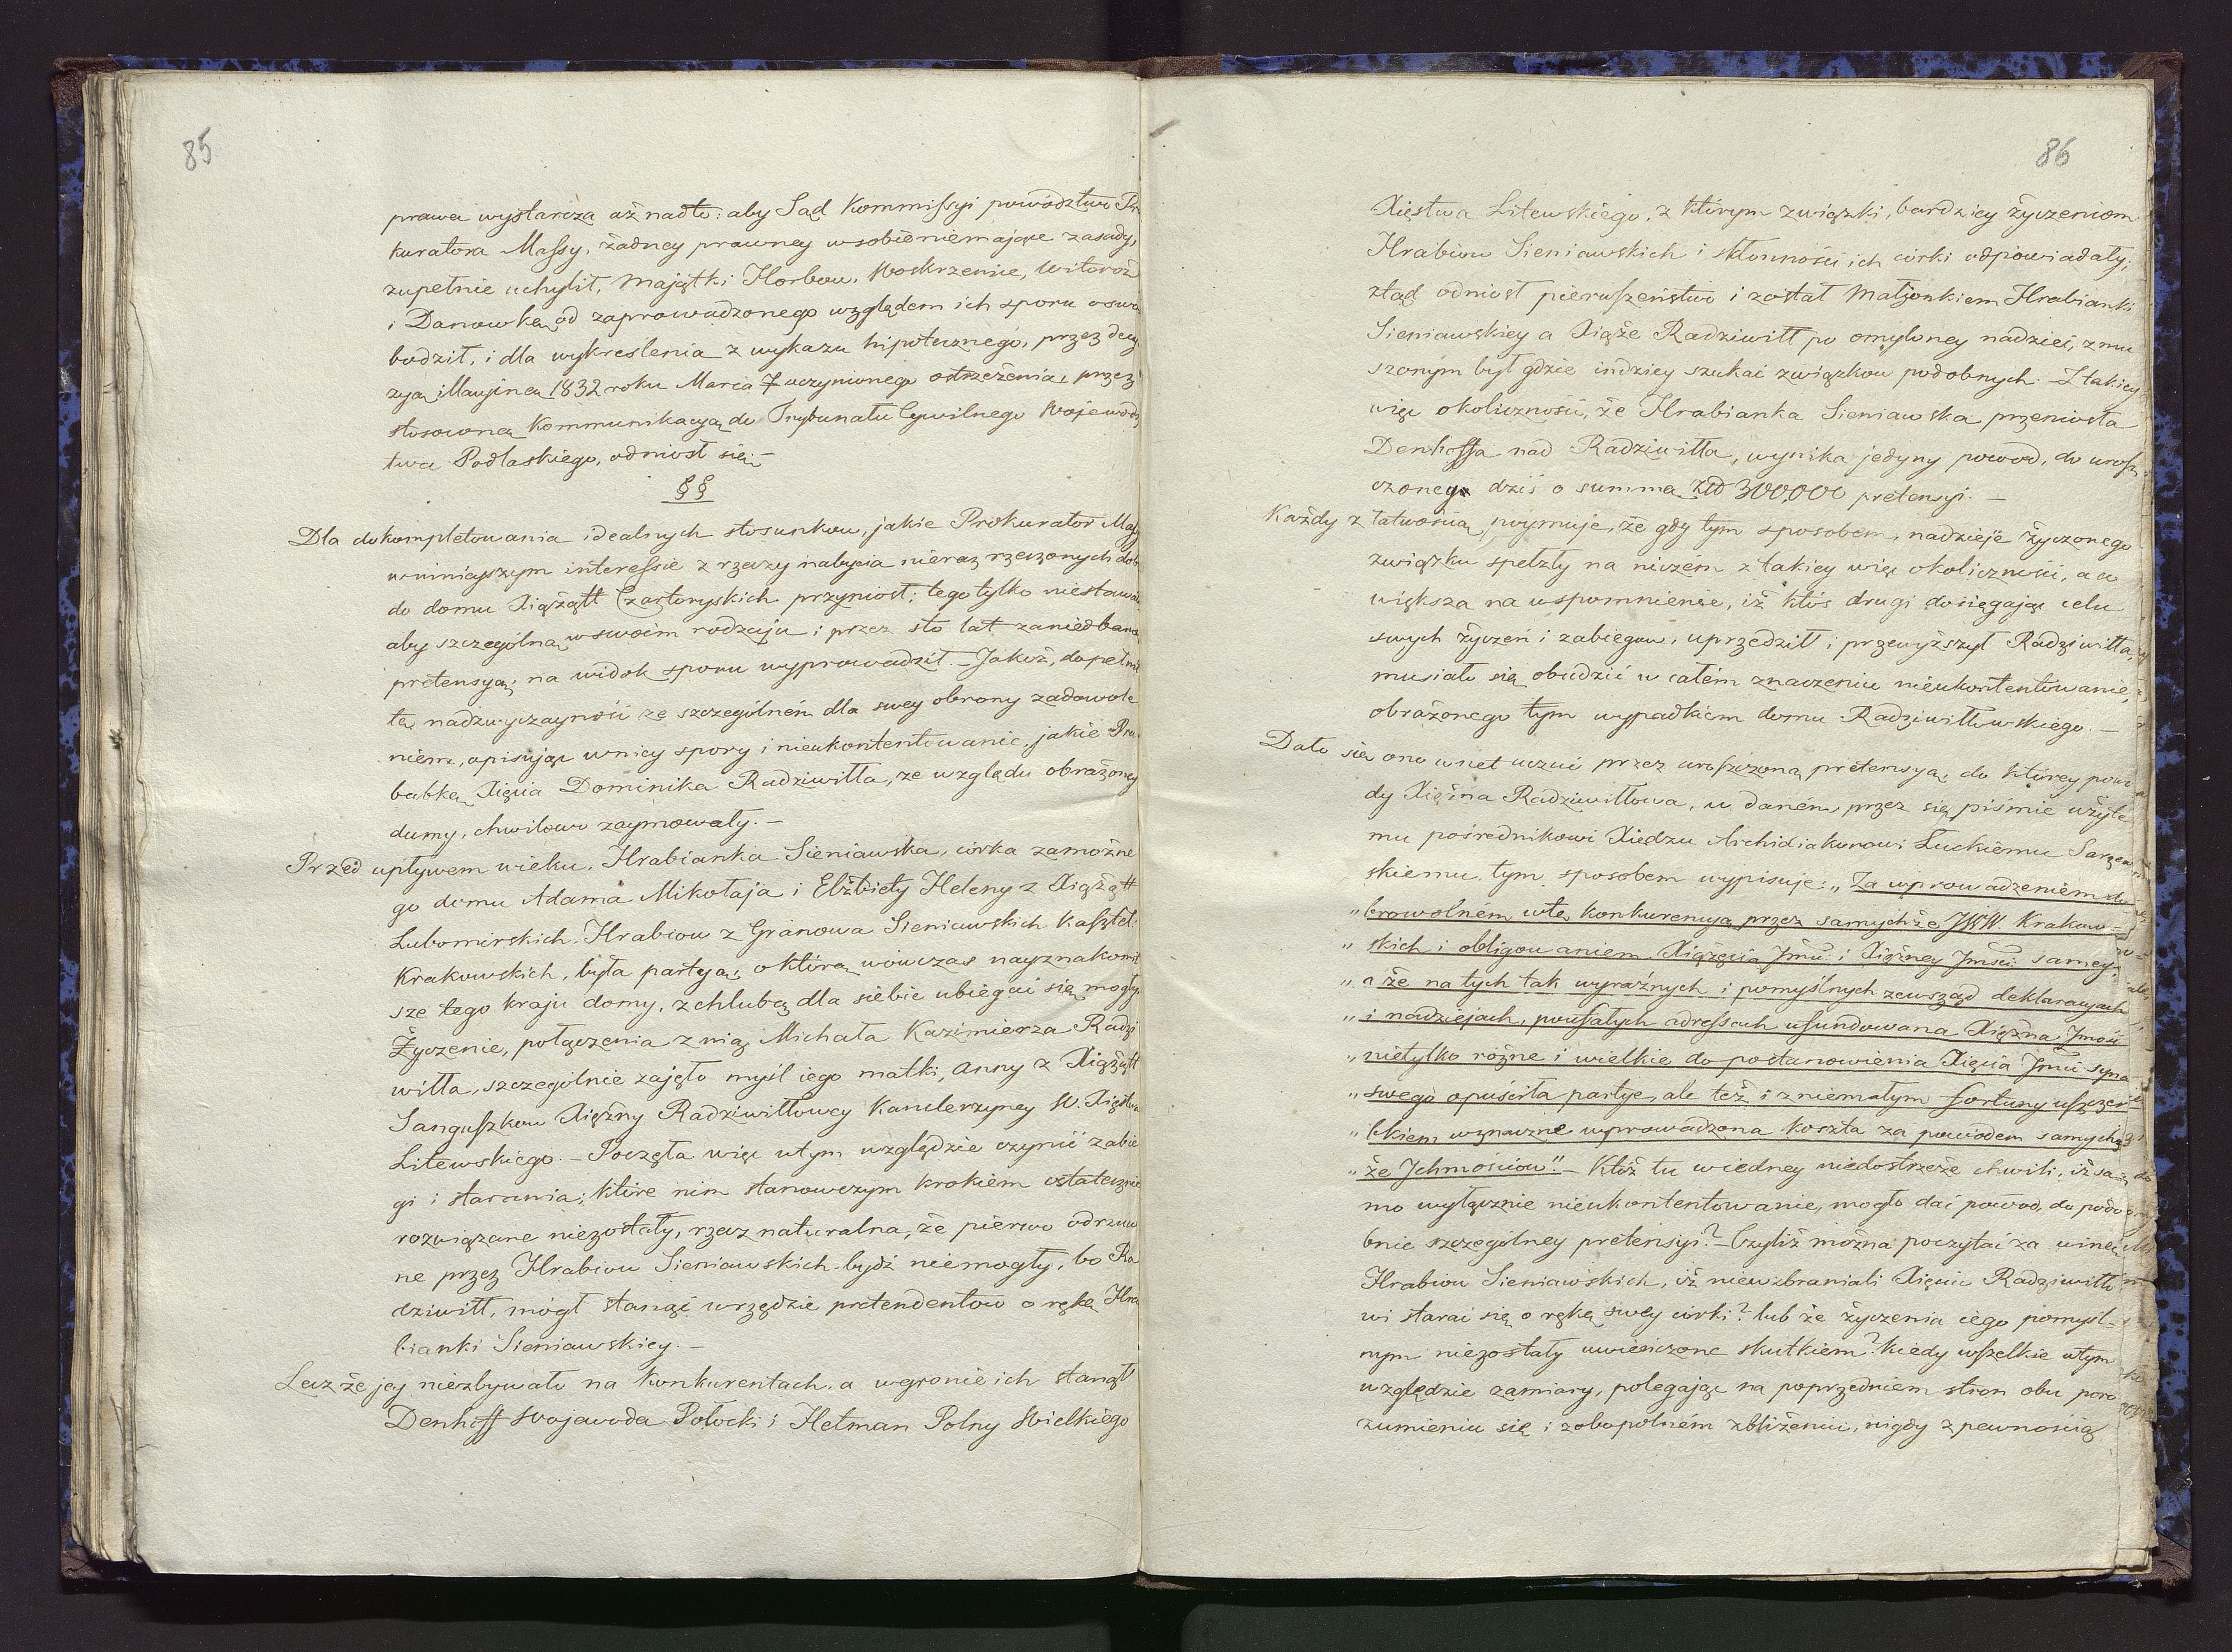 85
prawa wystarcza aż nadto: aby Sąd Kommissyi powództwo Pro
kuratora Massy, żadney prawney wsobie niemające zasady,
zupełnie uchylił, Majątki Horbow, Woskrzenice, Witoroż
i Danowkę od zaprowadzonego względem ich sporu oswo
bodził, i dla wykreslenia z wykazu hipotecznego, przez decy
zyą illacyiną 1832 roku Marca 7 uczynionego ostrzeżenia, przez
stosowną Kommunikacyą do Trybunału Cywilnego Wojewodz
twa Podlaskiego, odniosł się. –
§§
Dla dokompletowania idealnych stosunkow, jakie Prokurator Massy
wninieyszym interessie z rzeczy nabycia nieraz rzeczonych dobr
do domu Xiążątt Czartoryskich przyniosł; tego tylko niestawało
aby szczególną wswoim rodzaju i przez sto lat zaniedbaną
pretensyą; na widok sporu wyprowadził. – Jakoż, dopełnił
tę nadzwyczayność ze szczególném dla swey obrony zadowole
niem, opisując wniey spory i nieukontentowanie, jakie Pra
babkę Xięcia Dominika Radziwiłła, ze względu obrażoney
dumy, chwilowo zaymowały. –
Przed upływem wieku, Hrabianka Sieniawska, córka zamożne
go domu Adama Mikołaja i Elżbiety Heleny z Xiążątt
Lubomirskich, Hrabiow z Granowa Sieniawskich Kasztel:
Krakowskich, była partyą; o którą wówczas nayznakomit
sze tego kraju domy, z chlubą dla siebie ubiegać się mogły.
Życzenie, połączenia z nią, Michała Kazimierza Radzi
wiłła, szczególnie zajęło myśl iego matki, Anny z Xiążątt
Sanguszkow Xiężny Radziwiłłowey Kanclerzyney W. Xięstwa
Litewskiego. – Poczęła więc wtym względzie czynić zabie
gi i starania; które nim stanowczym krokiem ostatecznie
rozwiązane niezostały, rzecz naturalna, że pierwo odrzuco
ne przez Hrabiow Sieniawskich bydź niemogły, bo Ra
dziwiłł, mógł stanąć wrzędzie pretendentow o rękę Hra
bianki Sieniawskiey. –
Lecz że jey niezbywało na konkurentach, a wgronie ich stanął
Denhoff Wojewoda Połocki i Hetman Polny Wielkiego
86
Xięstwa Litewskiego, z którym związki, bardziey życzeniom
Hrabiow Sieniawskich i skłonności ich córki odpowiadały;
ztąd odniosł pierwszeństwo i został Małżonkiem Hrabianki
Sieniawskiey a Xiąże Radziwiłł po omyloney nadziei, zmu
szonym był gdzie indziey szukać związkow podobnych. – Z takiey
więc okoliczności, że Hrabianka Sieniawska przeniosła
Denhoffa nad Radziwiłła, wynika jedyny powod, do urosz
czoney dziś o summę Złd 300,000 pretensyi. –
Każdy z łatwością poymuje, że gdy tym sposobem, nadzieje życzonego
związku spełzły na niczém z takiey więc okoliczności, a co
większa na wspomnienie, iż któś drugi dosięgając celu
swych życzeń i zabiegow, uprzedził i przewyższył Radziwiłła,
musiało się obudzić w całém znaczeniu nieukontentowanie,
obrażonego tym wypadkiem domu Radziwiłłowskiego. –
Dało się ono wnet uczuć przez uroszczoną pretensyą; do którey powo
dy Xiężna Radziwiłłowa, w daném przez się piśmie użyte
mu pośrednikowi Xiędzu Archidiakonowi Łuckiemu
skiemu, tym sposobem wypisuje: „Za wprowadzeniem do
„browolném wtę konkurencyą przez samychże JWW. Krakow
„skich i obligowaniem Xiążęcia Jmci i Xiężney Jmci samey;
„a że na tych tak wyraźnych i pomyślnych zewsząd deklaracyach
„i nadziejach, poufałych adressach ufundowana Xiężna Jmość
„nietylko różne i wielkie do postanowienia Xięcia Jmci syna
„swego opuściła partye, ale też i z niemałym fortuny uszczer
„bkiem wznaczne wprowadzona koszta za powodem samych
„że Jchmościow". – Któż tu wiedney niedostrzeże chwili, iż sa
mo wyłącznie nieukontentowanie, mogło dać powod, do podo
bnie szczególney pretensyi? – Czyliż można poczytać za winę
Hrabiow Sieniawskich, iż niewzbraniali Xięciu Radziwiłło
wi starać się o rękę swey córki? lub że życzenia iego pomyśl=
nym niezostały uwieńczone skutkiem? Kiedy wszelkie wtym
względzie zamiary, polegając na poprzedniém stron obu poro
zumieniu się i zobopolném zbliżeniu, nigdy z pewnością